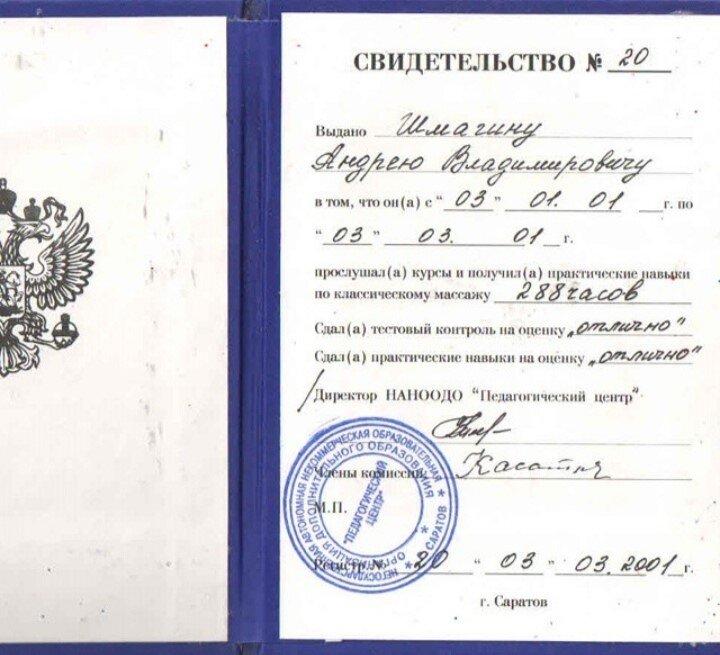 СВИДЕТЕЛЬСТВО № 20
Выдано Шмагину
Андрею Владимировичу
в том, что он(а) с "03" 01. 01 г. по
"03" 03. 01 г.
прослушал(а) курсы и получил(а) практические навыки
по классическому массажу 288 часов
Сдал(а) тестовый контроль на оценку „отлично"
Сдал(а) практические навыки на оценку „отлично"
Директор НАНООДО "Педагогический центр"
Члены комиссии
М.П.
НЕГОСУДАРСТВЕННАЯ АВТОНОМНАЯ НЕКОММЕРЧЕСКАЯ ОБРАЗОВАТЕЛЬНАЯ
ОРГАНИЗАЦИЯ ДОПОЛНИТЕЛЬНОГО ОБРАЗОВАНИЯ
"ПЕДАГОГИЧЕСКИЙ
ЦЕНТР"
г. САРАТОВ
Регистр. № 20 " 03 " 03. 2001 г.
г. Саратов